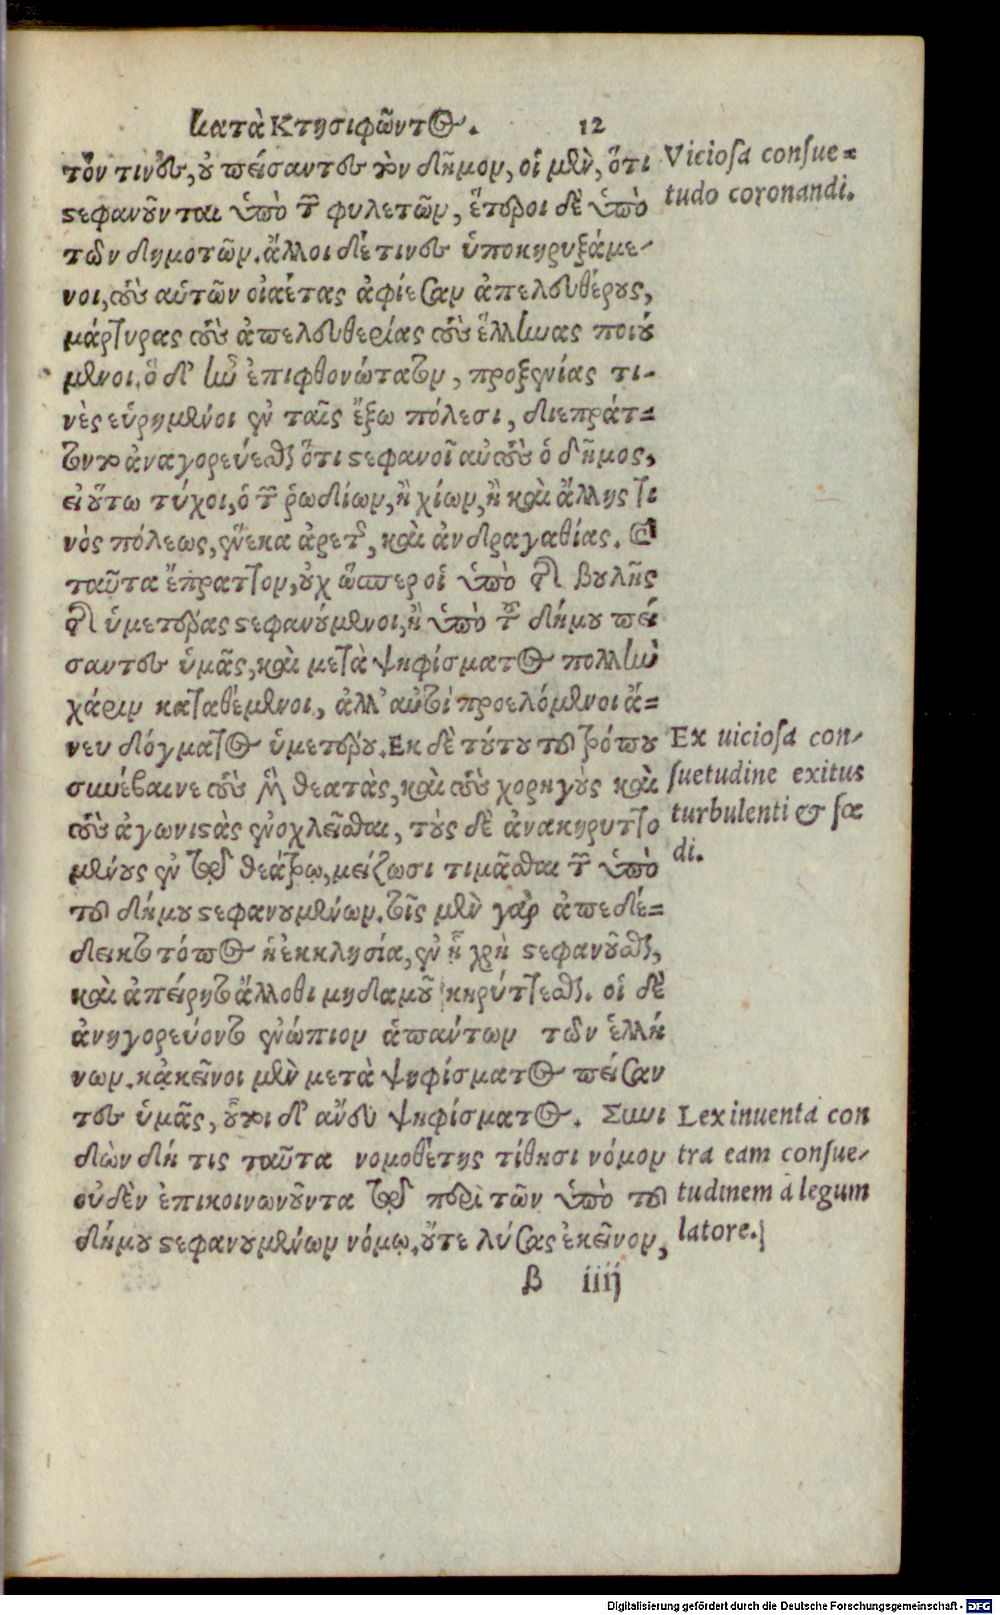 κατὰ Κτησιφῶντος. 12
τόν τινες, οὐ πείσαντες τὸν δῆμον, οἱ μὲν, ὅτι
στεφανοῦνται ὑπὸ τῶν φυλετῶν, ἕτεροι δὲ ὑπὸ
τῶν δημοτῶν. ἄλλοι δέ τινες ὑποκηρυξάμε-
νοι, τοὺς αὑτῶν οἰκέτας ἀφίεσαν ἀπελευθέρους,
μάρτυρας τοὺς ἀπελευθερίας τοὺς ἕλληνας ποιού
μενοι. ὃ δ' ἦν ἐπιφθονώτατον, προξενίας τι-
νὲς εὑρημένοι ἐν ταῖς ἔξω πόλεσι, διεπράτ-
τοντο ἀναγορεύεσθαι ὅτι στεφανοῖ αὐτοὺς ὁ δῆμος,
εἰ οὕτω τύχοι, ὁ τῶν ῥωδίων, ἢ χίων, ἢ καὶ ἄλλης τι
νὸς πόλεως, ἕνεκα ἀρετῆς, καὶ ἀνδραγαθίας. καὶ
ταῦτα ἔπραττον, οὐχ ὥσπερ οἱ ὑπὸ τῆς βουλῆς
τῆς ὑμετέρας στεφανούμενοι, ἢ ὑπὸ τοῦ δήμου πεί
σαντες ὑμᾶς, καὶ μετὰ ψηφίσματος πολλὴν
χάριν καταθέμενοι, ἀλλ' αὐτοὶ προελόμενοι ἄ-
νευ δόγματος ὑμετέρου. Ἐκ δὲ τούτου τοῦ τρόπου
συνέβαινε τοὺς μὲν θεατὰς, καὶ τοὺς χορηγοὺς καὶ
τοὺς ἀγωνιστὰς ἐνοχλεῖσθαι, τοὺς δὲ ἀνακηρυττο
μένους ἐν τῷ θεάτρῳ, μείζωσι τιμᾶσθαι τῶν ὑπὸ
τοῦ δήμου στεφανουμένων. τοῖς μὲν γὰρ ἀπεδέ-
δεικτο τόπος ἡ ἐκκλησία, ἐν ᾗ χρὴ στεφανοῦσθαι,
καὶ ἀπείρητο ἄλλοθι μηδαμοῦ κηρύττεσθαι. οἱ δὲ
ἀνηγορεύοντο ἐνώπιον ἁπάντων τῶν ἑλλή
νων. κἀκεῖνοι μὲν μετὰ ψηφίσματος πείσαν
τες ὑμᾶς, οὗτοι δ' ἄνευ ψηφίσματος. Συνι
δὼν δή τις ταῦτα νομοθέτης τίθησι νόμον
οὐδὲν ἐπικοινωνοῦντα τῷ περὶ τῶν ὑπὸ τοῦ
δήμου στεφανουμένων νόμῳ. οὔτε λύσας ἐκεῖνον,
β iiij
Viciosa consue=
tudo coronandi.
Ex uiciosa con-
suetudine exitus
turbulenti & fœ
di.
Lex inuenta con
tra eam consue-
tudinem à legum
latore.
Digitalisierung gefördert durch die Deutsche Forschungsgemeinschaft - DFG